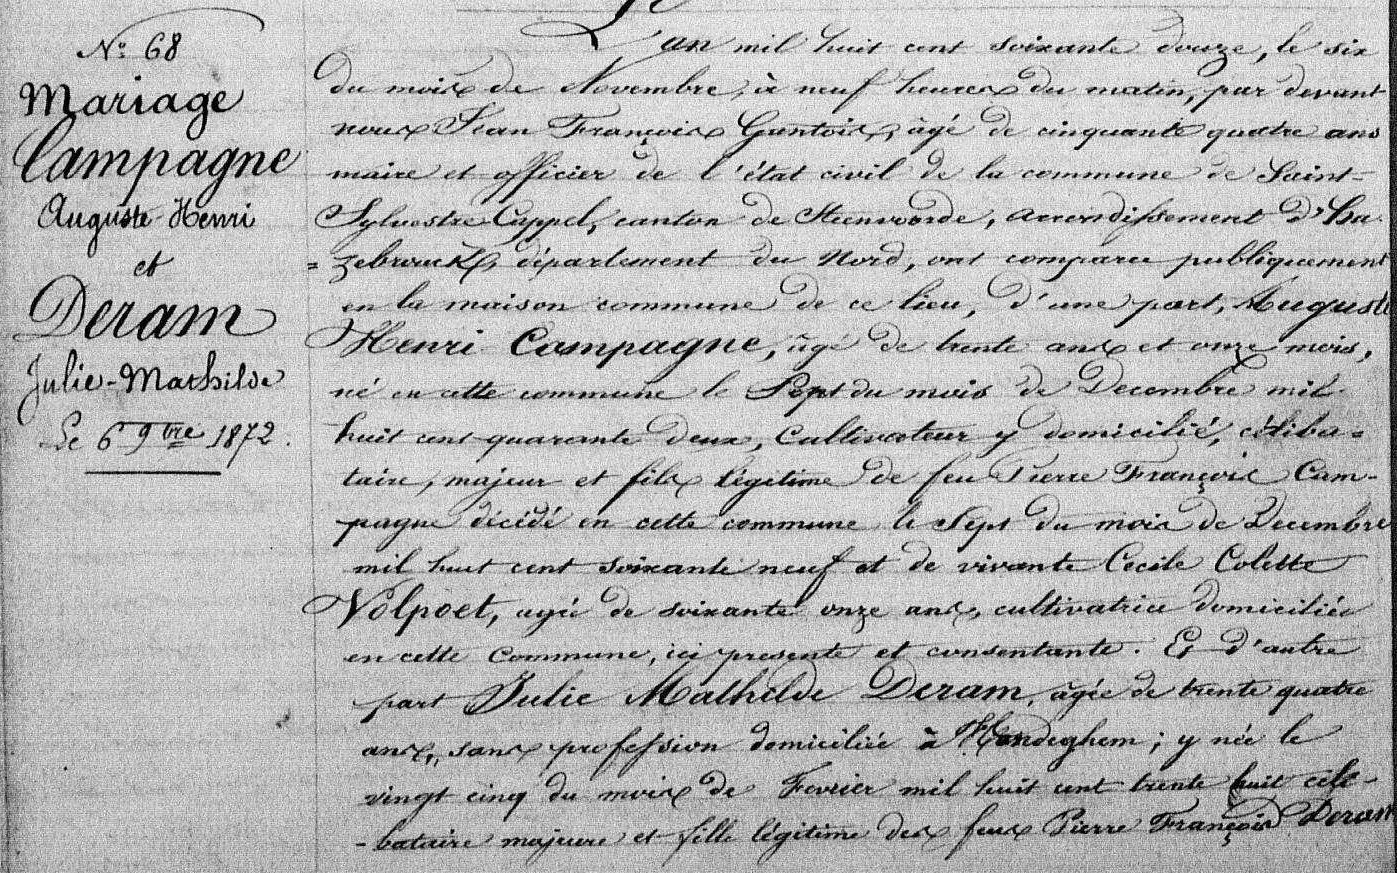 N° 68
Mariage
Campagne
Auguste-Henri
et
Deram
Julie-Mathilde
Le 6 9bre 1872.
L'an mil huit cent soixante douze, le six
du mois de Novembre, à neuf heures du matin, par devant
nous Jean François Gantois, âgé de cinquante quatre ans
maire et officier de l'état civil de la commune de Saint-
Sylvestre-Cappel, canton de Steenvoorde, arrondissement d'Ha
=zebrouck, département du Nord, ont comparu publiquement
en la maison commune de ce lieu, d'une part, Auguste
Henri Campagne, âgé de trente ans et onze mois,
né en cette commune le Sept du mois de Decembre mil
huit cent quarante deux, Cultivateur y domicilié, céliba=
taire, majeur et fils légitime de feu Pierre François Cam-
pagne décédé en cette commune le Sept du mois de Decembre
mil huit cent soixante neuf et de vivante Cecile Colette
Volpoet, agée de soixante onze ans, cultivatrice domiciliée
en cette Commune, ici presente et consentante. Et d'autre
part Julie Mathilde Deram, âgée de trente quatre
ans, sans profession domiciliée à Hondeghem; y née le
vingt cinq du mois de Fevrier mil huit cent trente huit céli-
-bataire majeure et fille légitime des feus Pierre François Deram